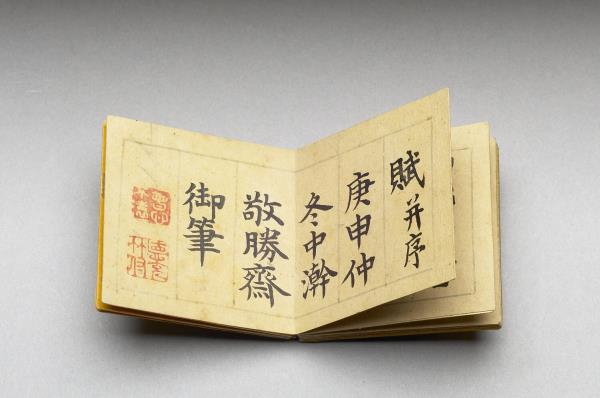 賦并序
庚申仲
冬中澣
敬勝齋
御筆